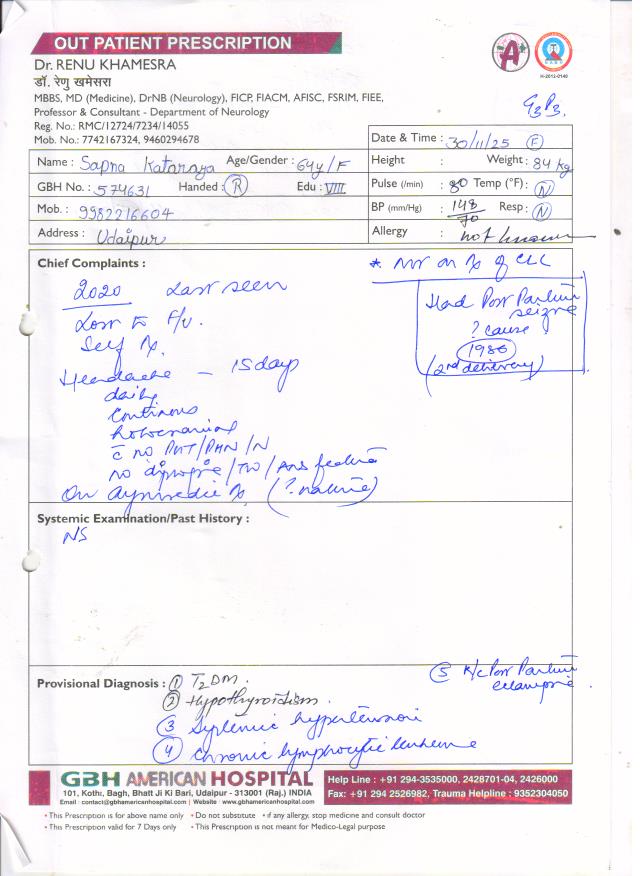 OUT PATIENT PRESCRIPTION
Dr. RENU KHAMESRA
डॉ. रेणु खमेसरा
MBBS, MD (Medicine), DrNB (Neurology), FICP, FIACM, AFISC, FSRIM, FIEE,
Professor & Consultant - Department of Neurology
Reg. No.: RMC/12724/7234/14055
Mob. No.: 7742167324, 9460294678
H-2012-0140
G3P3.
Date & Time : 30/11/25 (F)
Name : Sapna Age/Gender : 64y/F
Height : Weight : 84 kg
GBH No. : 574631 Handed : (R) Edu : VIII
Pulse (/min) : 80 Temp (°F) : (N)
Mob. : 9982216604
BP (mm/Hg) : 148/70 Resp : (N)
Address : Udaipur
Allergy : not known
Chief Complaints :
* on Rx of CLL
2020 Last seen
Had Post Partum
seizure
? cause
1986
(2nd delivery)
Loss to F/U.
Self Rx.
Headache – 15 days
daily
continous
holocranial
c̄ no /N
no /ANS feature
On Ayurvedic Rx (? nature)
Systemic Examination/Past History :
NS
Provisional Diagnosis : ① T2DM.
② Hypothyroidism.
③ Systemic hypertension
④ Chronic lymphocytic leukemia
⑤ K/c Post Partum
eclampsia.
GBH AMERICAN HOSPITAL
101, Kothi, Bagh, Bhatt Ji Ki Bari, Udaipur - 313001 (Raj.) INDIA
Email : contact@gbhamericanhospital.com | Website : www.gbhamericanhospital.com
Help Line : +91 294-3535000, 2428701-04, 2426000
Fax: +91 294 2526982, Trauma Helpline : 9352304050
• This Prescription is for above name only • Do not substitute • if any allergy, stop medicine and consult doctor
• This Prescription valid for 7 Days only • This Prescription is not meant for Medico-Legal purpose